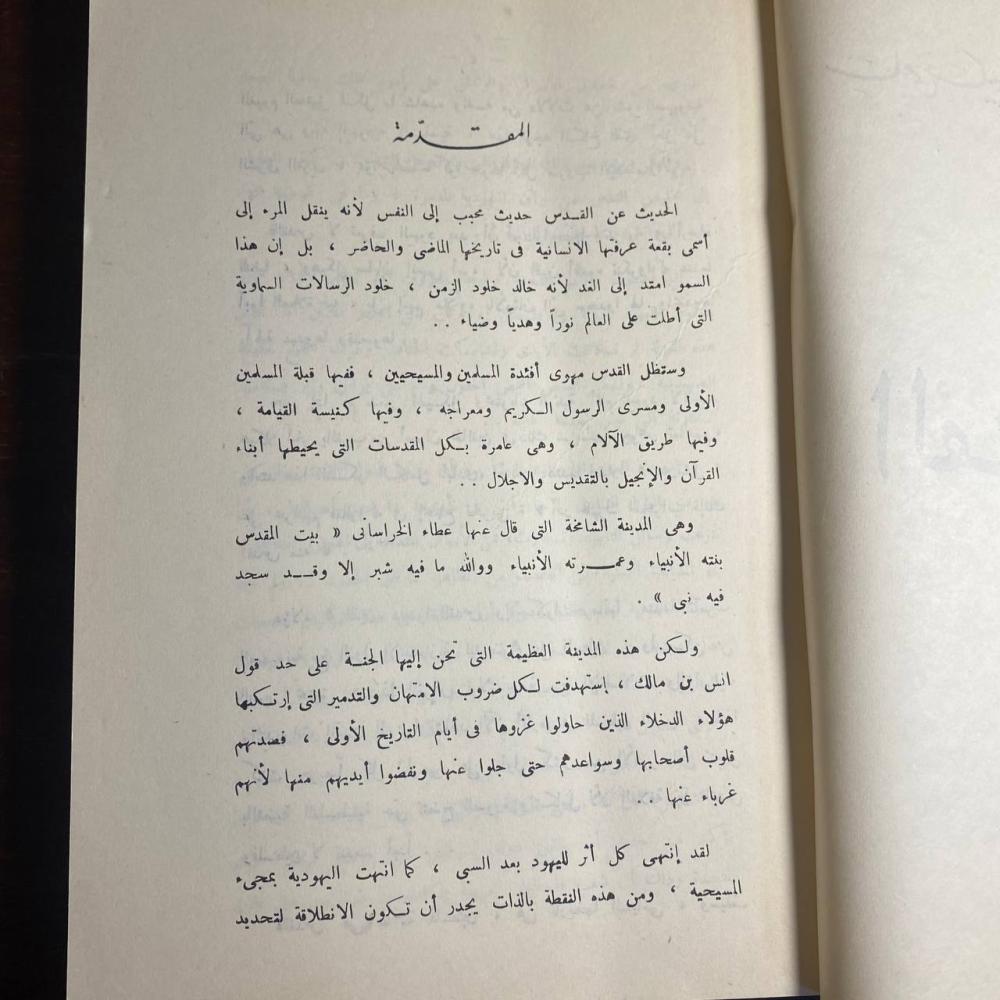 المقدّمة
الحديث عن القدس حديث محبب إلى النفس لأنه ينقل المرء إلى
أسمى بقعة عرفتها الانسانية فى تاريخها الماضى والحاضر ، بل إن هذا
السمو امتد إلى الغد لأنه خالد خلود الزمن ، خلود الرسالات السماوية
التى أطلت على العالم نوراً وهدياً وضياء . .
وستظل القدس مهوى أفئدة المسلمين والمسيحيين ، ففيها قبلة المسلمين
الأولى ومسرى الرسول الكريم ومعراجه ، وفيها كنيسة القيامة ،
وفيها طريق الآلام ، وهى عامرة بكل المقدسات التى يحيطها أبناء
القرآن والإنجيل بالتقديس والاجلال . .
وهى المدينة الشامخة التى قال عنها عطاء الخراسانى « بيت المقدس
بنته الأنبياء وعمرته الأنبياء ووالله ما فيه شبر إلا وقد سجد
فيه نبى » .
ولكن هذه المدينة العظيمة التى تحن إليها الجنة على حد قول
انس بن مالك ، إستهدفت لكل ضروب الامتهان والتدمير التى إرتكبها
هؤلاء الدخلاء الذين حاولوا غزوها فى أيام التاريخ الأولى ، فصدتهم
قلوب أصحابها وسواعدهم حتى جلوا عنها ونفضوا أيديهم منها لأنهم
غرباء عنها . .
لقد إنتهى كل أثر لليهود بعد السبى ، كما انتهت اليهودية بمجىء
المسيحية ، ومن هذه النقطة بالذات يجدر أن تكون الانطلاقة لتحديد